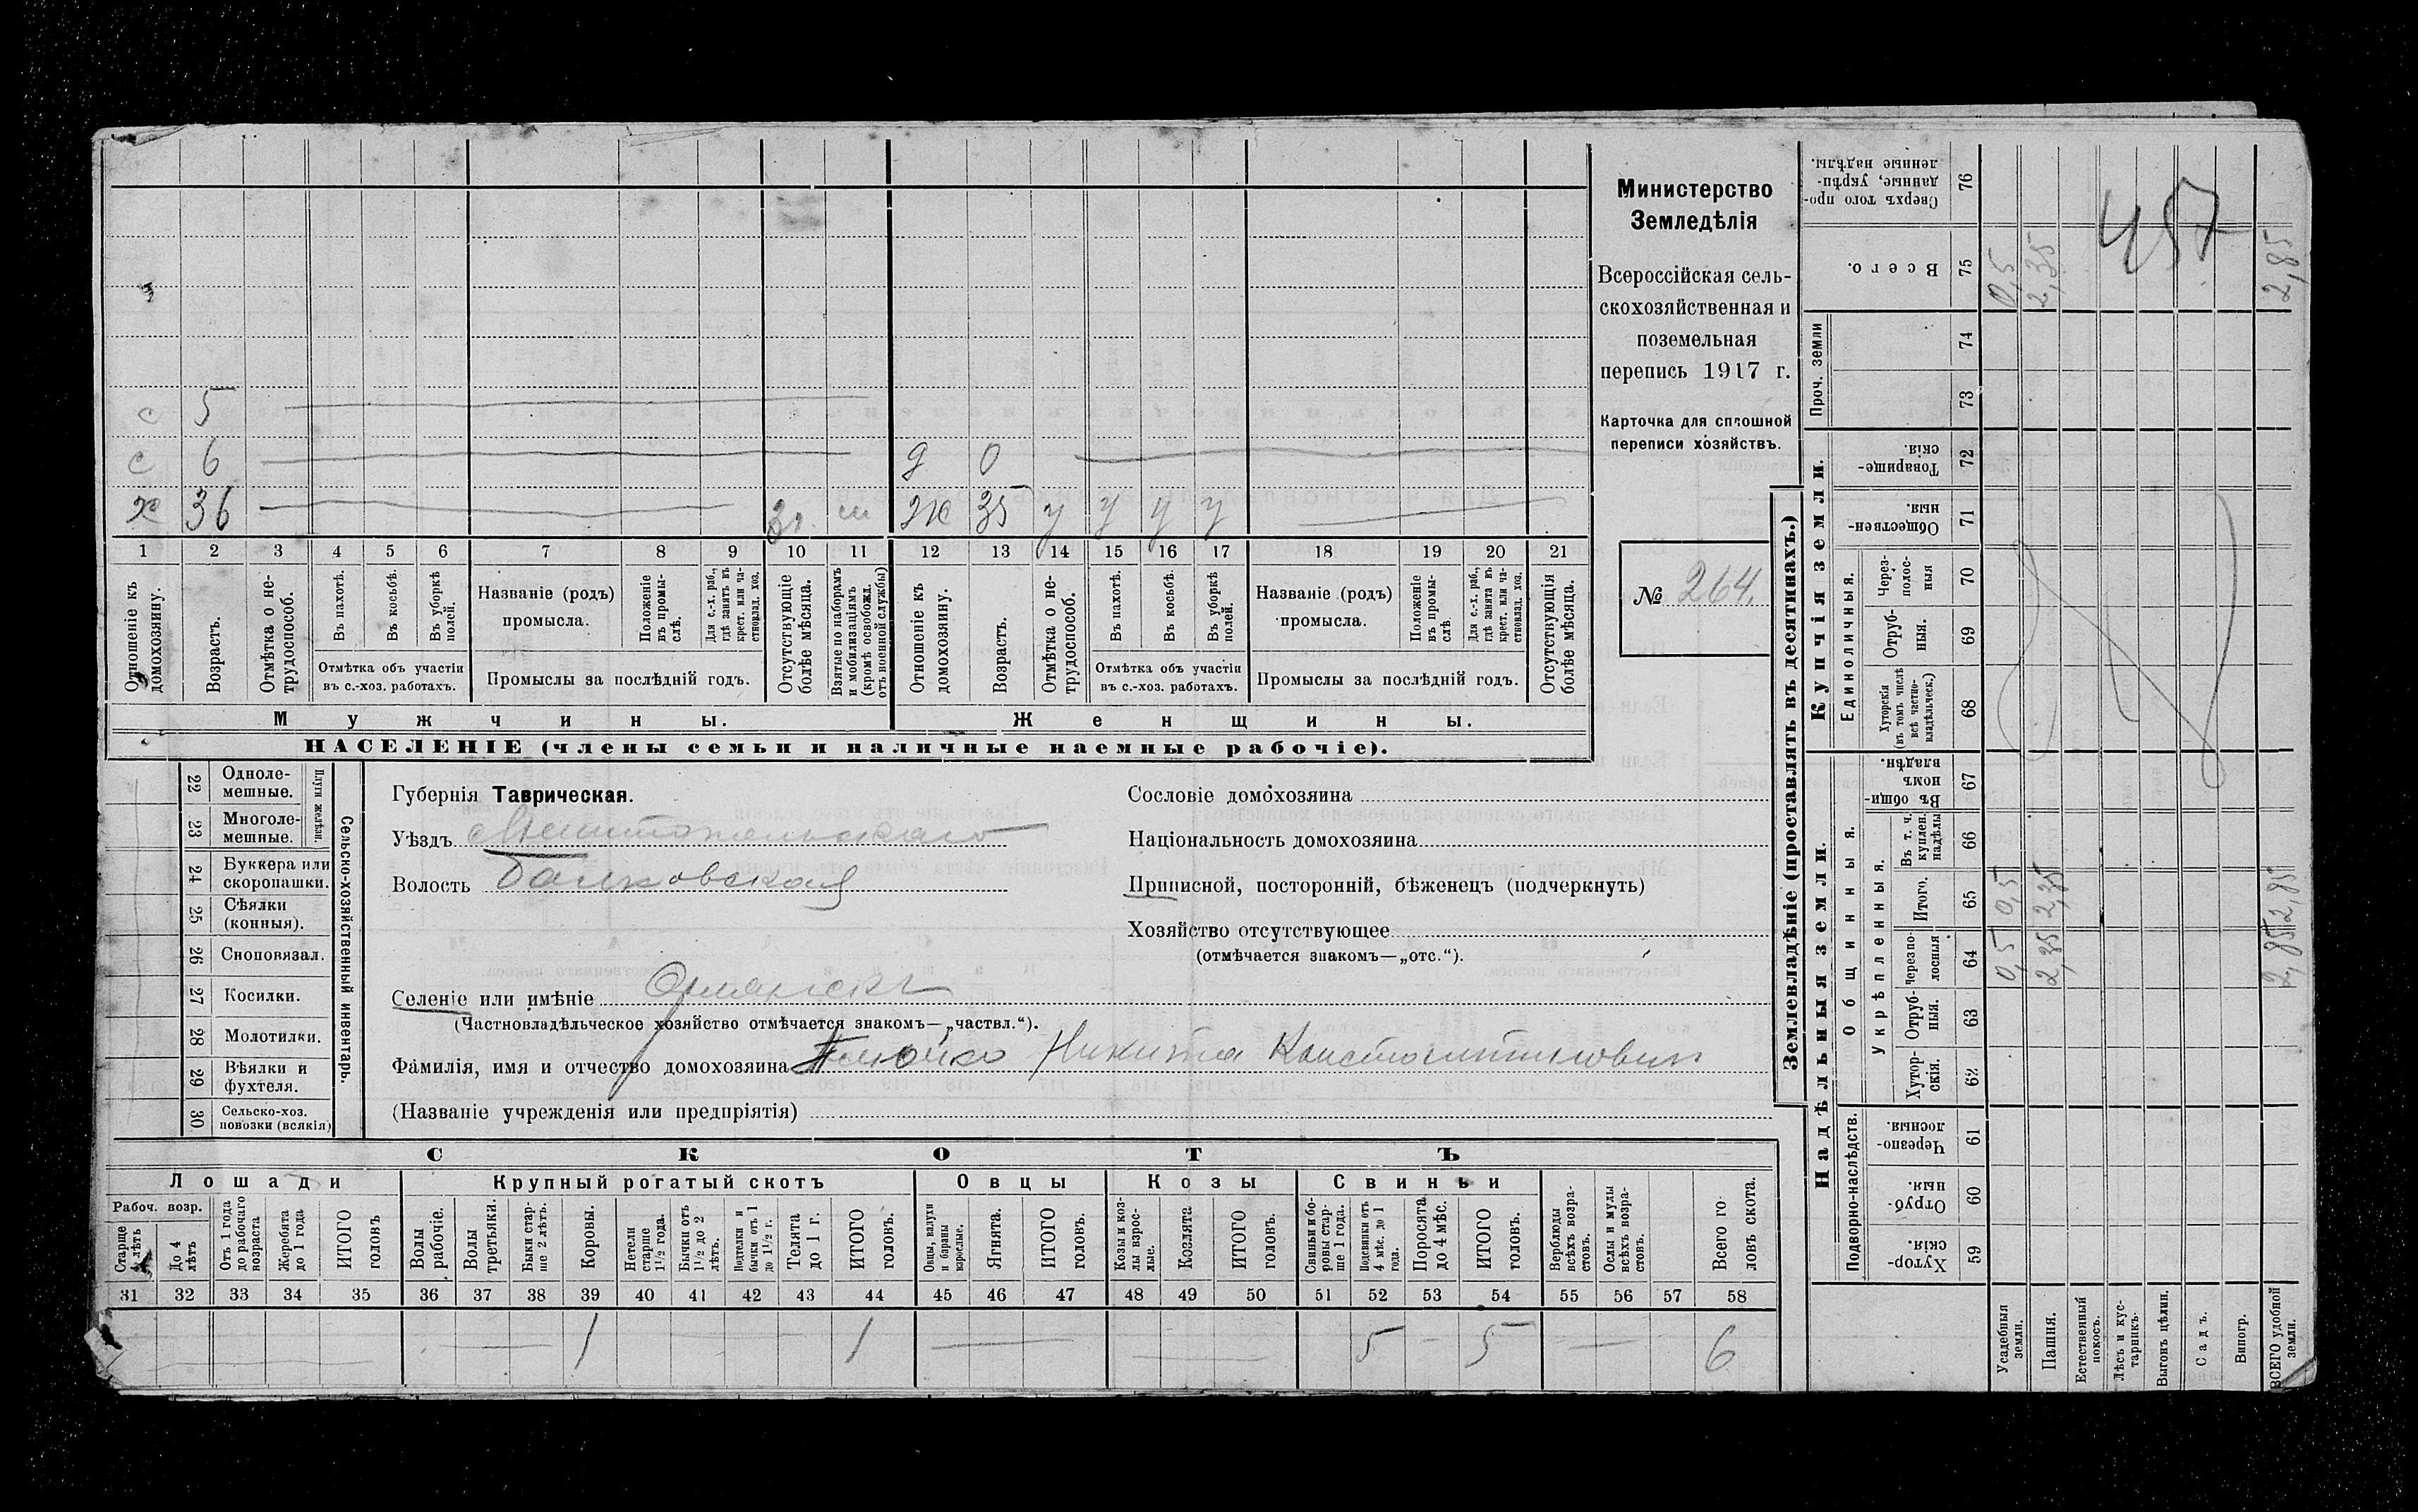 с 5
с 6 д 0
х 36 3 г. ж 35 у у у у
1 2 3 4 5 6 7 8 9 10 11 12 13 14 15 16 17 18 19 20 21
Отношеніе къ домохозяину.
Возрастъ.
Отмѣтка о не-трудоспособ.
Въ пахотѣ.
Въ косьбѣ.
Въ уборкѣ полей.
Отмѣтка объ участіи
въ с.-хоз. работахъ.
Названіе (родъ)
промысла.
Положеніе въ промы-слѣ.
Для с.-х. раб., гдѣ занятъ въ крест. или ча-стновлад. хоз.
Промыслы за послѣдній годъ.
Отсутствующіе болѣе мѣсяца.
Взятые по наборамъ и мобилизаціямъ (кромѣ освобожд. отъ военной службы)
Отношеніе къ домохозяину.
Возрастъ.
Отмѣтка о не-трудоспособ.
Въ пахотѣ.
Въ косьбѣ.
Въ уборкѣ полей.
Отмѣтка объ участіи
въ с.-хоз. работахъ.
Названіе (родъ)
промысла.
Положеніе въ промы-слѣ.
Для с.-х. раб., гдѣ занята въ крест. или ча-стновлад. хоз.
Промыслы за послѣдній годъ.
Отсутствующія болѣе мѣсяца.
Мужчины.
Женщины.
НАСЕЛЕНІЕ (члены семьи и наличные наемные рабочіе).
Министерство
Земледѣлія
Всероссійская сель-
скохозяйственная и
поземельная
перепись 1917 г.
Карточка для сплошной
переписи хозяйствъ.
№ 264.
22 Одноле-мешные.
23 Многоле-мешные.
Плуги желѣзн.
24 Буккера или скоропашки.
25 Сѣялки (конныя).
26 Сноповязал.
27 Косилки.
28 Молотилки.
29 Вѣялки и фухтеля.
30 Сельско-хоз. повозки (всякія)
Сельско-хозяйственный инвентарь.
Губернія Таврическая.
Уѣздъ Мелитопольскаго
Волость Балковская
Селеніе или имѣніе
(Частновладѣльческое хозяйство отмѣчается знакомъ—„частвл.“).
Фамилія, имя и отчество домохозяина Никита Константинович
(Названіе учрежденія или предпріятія)
Сословіе домохозяина
Національность домохозяина
Приписной, посторонній, бѣженецъ (подчеркнуть)
Хозяйство отсутствующее
(отмѣчается знакомъ—„отс.“).
СКОТЪ
Лошади
Крупный рогатый скотъ
Овцы
Козы
Свиньи
Рабоч. возр.
Старше 4 лѣтъ
До 4 лѣтъ
Отъ 1 года до рабочаго возраста
Жеребята до 1 года
ИТОГО головъ
Волы рабочіе.
Волы третьяки.
Быки стар-ше 2 лѣтъ.
Коровы.
Нетели старше 1½ года.
Бычки отъ 1½ до 2 лѣтъ.
Подтелки и бычки отъ 1 до 1½ г.
Телята до 1 г.
ИТОГО головъ.
Овцы, валухи и бараны взрослые.
Ягнята.
ИТОГО головъ.
Козы и коз-лы взрос-лые.
Козлята
ИТОГО головъ.
Свиньи и бо-ровы стар-ше 1 года.
Подсвинки отъ 4 мѣс. до 1 года.
Поросята до 4 мѣс.
ИТОГО головъ.
Верблюды всѣхъ возра-стовъ.
Ослы и мулы всѣхъ возра-стовъ.
Всего го-ловъ скота.
31 32 33 34 35 36 37 38 39 40 41 42 43 44 45 46 47 48 49 50 51 52 53 54 55 56 57 58
1 1 5 – 5 6
Землевладѣніе (проставлять въ десятинахъ.)
Надѣльныя земли.
Купчія земли.
Проч. земли
Подворно-наслѣдств.
Общинныя.
Укрѣпленныя.
Единоличныя.
Хутор-скія. 59
Отруб-ныя. 60
Черезпо-лосныя. 61
Хутор-скія. 62
Отруб-ныя. 63
Черезпо-лосныя 64
Итого. 65
Въ т. ч. куплен. надѣлы 66
Въ общи-номъ владѣн. 67
Хуторскія (въ томъ числѣ всѣ частно-владѣльческ.) 68
Отруб-ныя. 69
Через-полос-ныя 70
Обществен-ныя. 71
Товарище-скія. 72
73
74
Всего. 75
Сверхъ того про-данные, укрѣп-ленные надѣлы. 76
Усадебныя земли. 0,5 0,5 0,5
Пашня. 2,35 2,35 2,35
Естественный покосъ.
Лѣсъ и кус-тарникъ.
Выгонъ цѣлин.
Садъ.
Виногр.
ВСЕГО удобной земли. 2,85 2,85 2,85
457